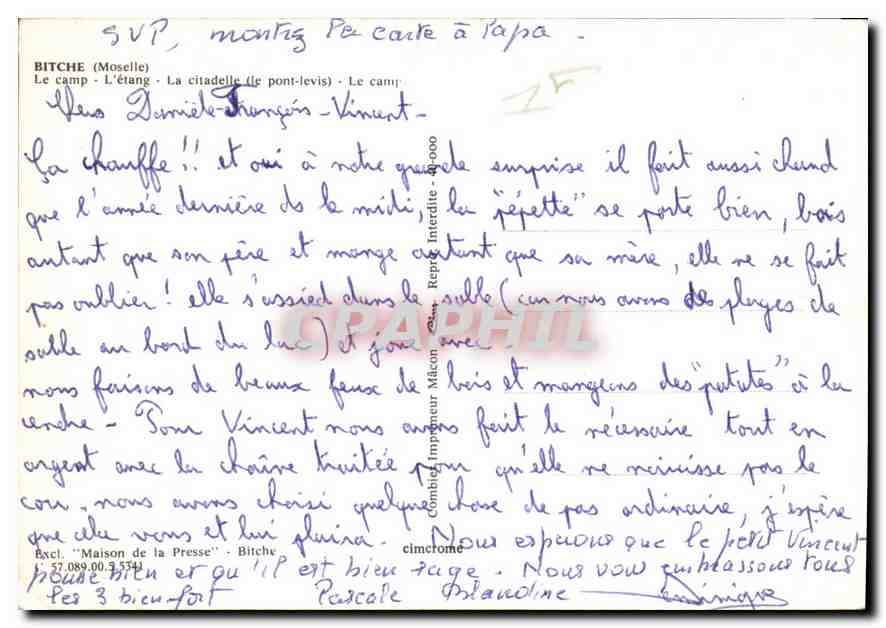 SVP, montrez la carte à Papa.
BITCHE (Moselle)
Le camp - L'étang - La citadelle (le pont-levis) - Le camp
1F
Danièle - François - Vincent -
Ça chauffe!! et oui à notre grande surprise il fait aussi chaud
que l'année dernière ds le midi, la "pépette" se porte bien, bois
autant que son père et mange autant que sa mère, elle ne se fait
pas oublier! elle s'assied dans le sable (car nous avons des plages de
sable au bord du lac) et joue avec
nous faisons de beaux feux de bois et mangeons des "patates" à la
cendre - Pour Vincent nous avons fait le nécessaire tout en
argent avec la chaîne traitée pour qu'elle ne noircisse pas le
cou, nous avons choisi quelque chose de pas ordinaire, j'espère
que cela vous et lui plaira. Nous espérons que le petit Vincent
pousse bien et qu'il est bien sage. Nous vous embrassons tous
les 3 bien fort Pascale Blandine
Combier Imprimeur Mâcon Repro. Interdite - 40-000
CPAPHIL
Excl. "Maison de la Presse" - Bitche
cimcrome
57.089.00.5.5341